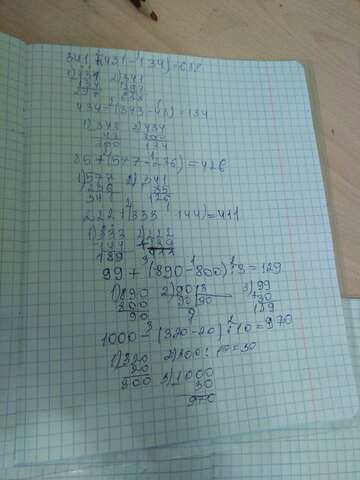 341+(431-134)=638
1)431 2)341
134 297
297 638
434-(343-43)=134
1)343 2)434
43 300
300 134
85+(577-236)=426
1)577 2)341
236 85
341 426
222+(333-144)=411
1)333 2)222
144 189
189 411
99+(890-800):3=129
1)890 2)90 3 3)99
800 90 30 +30
90 0 129
1000-(320-20):10=970
1)320 2)300:10=30
20
300 3)1000
30
970